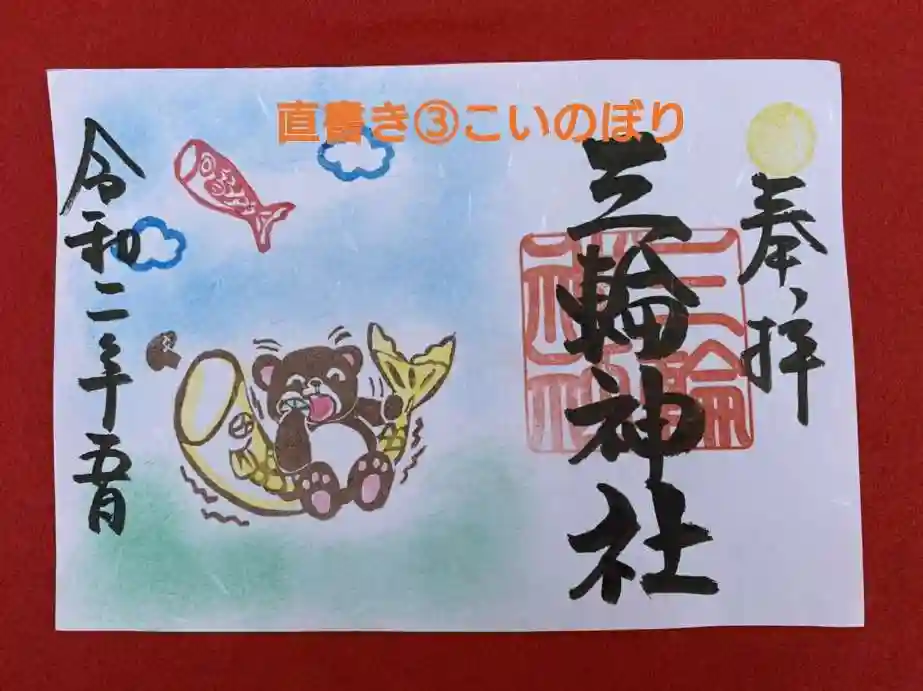 直書き③こいのぼり
奉拝
三輪神社
三輪
神社
令和二年五月